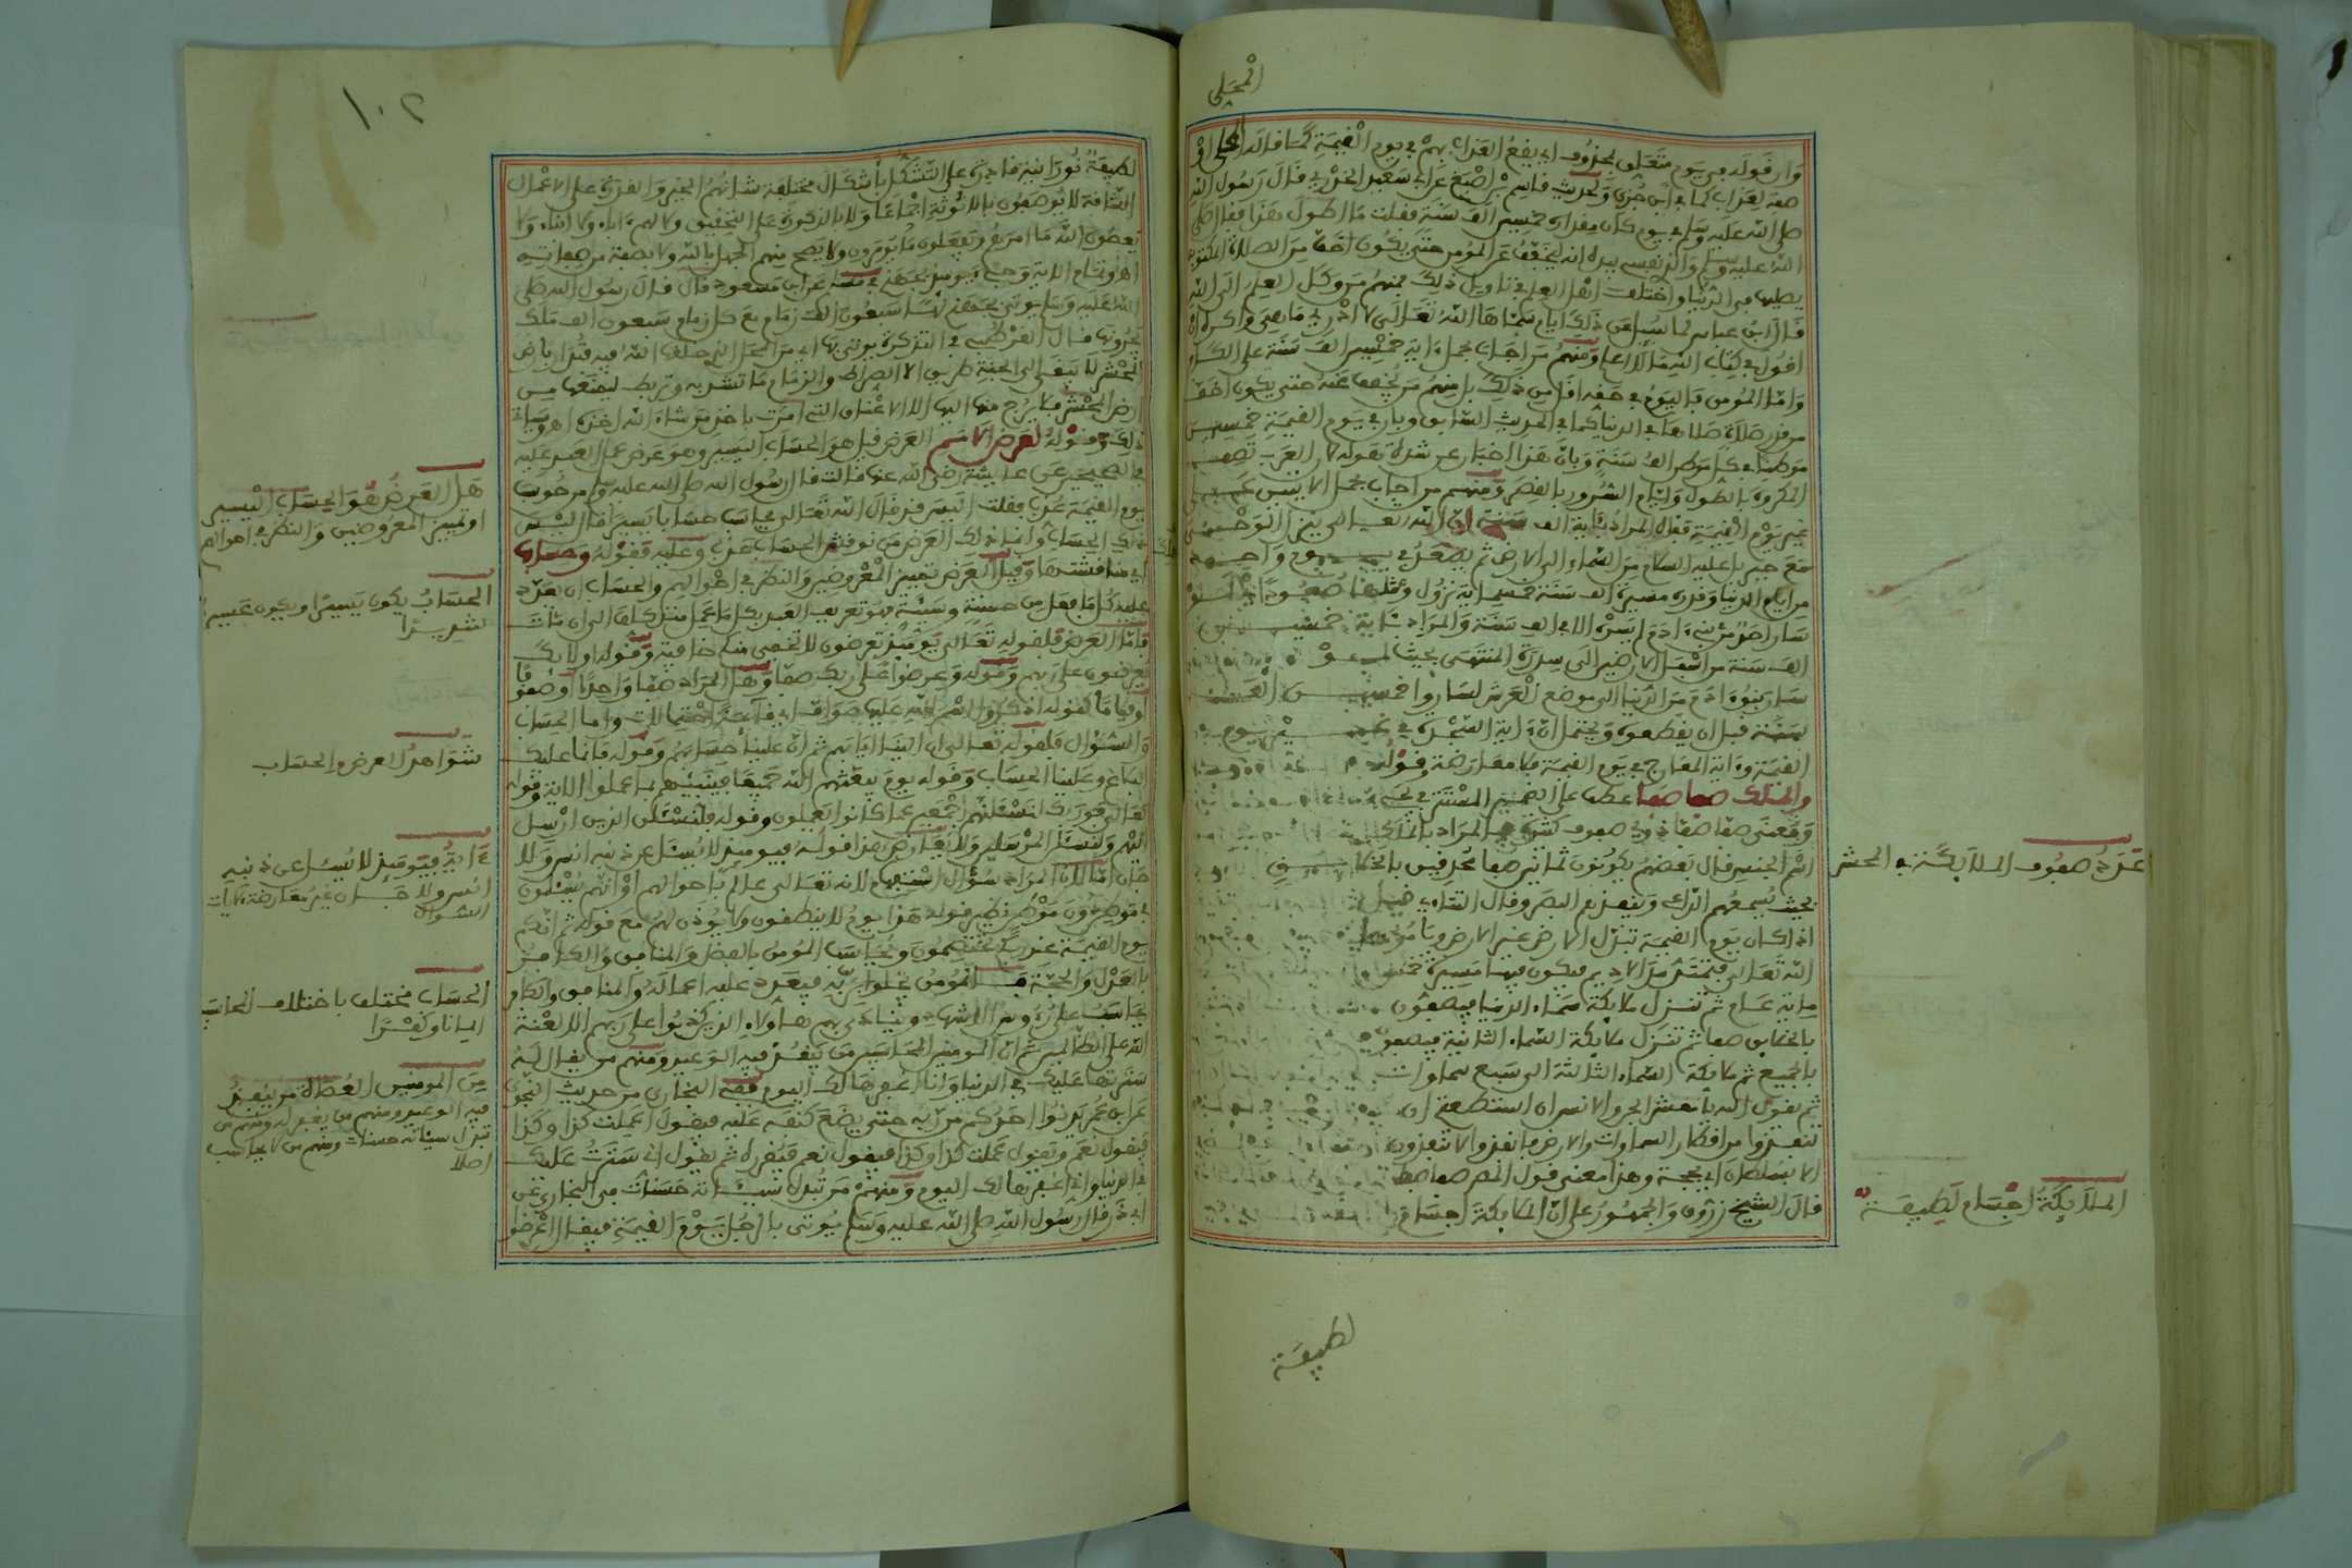 المحلي
وان قوله في يوم متعلق بمحذوف اي يقع العذاب بهم في يوم القيمة كما قاله المحلي او
صفة لعذاب كما في ابن جزي وحديث قاسم بن اصبغ عن ابي سعيد الخدري قال رسول الله
صلى الله عليه وسلم في يوم كان مقداره خمسين الف سنة فقلت ما اطول هذا فقال صلى
الله عليه وسلم والذي نفسي بيده انه ليخفف عن المومن حتى يكون اخف من الصلاة المكتوبة
يصليها في الدنيا واختلف اهل العلم في تاويل ذلك فمنهم من وكل العلم الى الله
قال ابن عباس لما سئل عن ذلك ايام سماها الله تعالى لا ادري ما هي واكره ان
اقول في كتاب الله ما لا اعلم ومنهم من اجاب بحمل اية خمسين الف سنة على الكافر
واما المومن فاليوم في حقه اقل من ذلك بل منهم من يخفف عنه حتى يكون اخف
من قدر صلاة صلاها في الدنيا كما في الحديث السابق وبان في يوم القيمة خمسين
موطنا في كل موطن الف سنة وبان هذا اخبار عن شدة هوله لان العرب تصف
المكروه بالطول وايام السرور بالقصر ومنهم من اجاب بحمل الايتين على
غير يوم القيمة فقال المراد باية الف سنة ان الله تعالى ينزل الوحي
مع جبريل عليه السلام من السماء الى الارض ثم يصعد في يوم واحد
من ايام الدنيا وقدر مسيرة الف سنة خمسماية نزول ومثلها صعود اي لو
سار احد من بني ادم لم يسره الا في الف سنة والمراد باية خمسين
الف سنة من اسفل الارضين الى سدرة المنتهى بحيث لو
سار بنو ادم من الدنيا الى موضع العرش لساروا خمسين الف
سنة قبل ان يقطعوه ويحتمل ان اية السجدة في
القيمة واية المعارج في يوم القيمة فلا معارضة قوله
والملك صفا صفا عطف على الضمير المستتر في
ومعنى صفا صفا ذوي صفوف كثيرة
انهم الجنس قال بعضهم يكونون ثمانين صفا محدقين بالخلايق
بحيث يسمعهم الداعي وينفذهم البصر وقال
اذا كان يوم القيمة تبدل الارض غير الارض ويامر
الله تعالى فتمتد مد الاديم فيكون فيها مسيرة خمس
ماية عام ثم تنزل ملايكة سماء الدنيا فيصفون
بالخلايق صفا ثم تنزل ملايكة السماء الثانية فيصفون
بالجميع ثم ملايكة السماء الثالثة الى سبع سماوات
ثم يقول الله يا معشر الجن والانس ان استطعتم ان
تنفذوا من اقطار السماوات والارض فانفذوا لا تنفذون
الا بسلطان اي بحجة وهذا معنى قول
قال الشيخ زروق والجمهور على ان الملايكة اجسام
عدد صفوف الملايكة في الحشر
الملايكة اجسام لطيفة
لطيفة
١٠٢
لطيفة نورانية قادرة على التشكل باشكال مختلفة شانهم الخير والقدرة على الاعمال
الشاقة لا يوصفون بالانوثة اجماعا ولا بالذكورة على التحقيق ولا لهم اباء ولا ابناء ولا
يعصون الله ما امرهم ويفعلون ما يومرون ولا يصح منهم الجهل بالله ولا بصفة من صفاته
اهـ وتمام الاية وجيء يومئذ بجهنم في مسلم عن ابن مسعود قال قال رسول الله صلى
الله عليه وسلم يوتى بجهنم لها سبعون الف زمام مع كل زمام سبعون الف ملك
يجرونها قال القرطبي في التذكرة يوتى بها اي من المحل الذي خلقها الله فيه فتدار بارض
المحشر لا يبقى الى الجنة طريق الا الصراط والزمام ما تشد به وتربط ليمنعها من
ارض المحشر فلا يخرج منها اليها الا الاعناق التي امرت باخذ من شاء الله اخذه اهـ وسياتي
ذلك قوله لعرض الامم العرض قيل هو الحساب اليسير وهو عرض عمل العبد عليه
في الصحيحين عن عايشة رضي الله عنها قالت قال رسول الله صلى الله عليه وسلم من حوسب
يوم القيمة عذب فقلت اليس قد قال الله تعالى يحاسب حسابا يسيرا فقال ليس
ذلك الحساب وانما ذلك العرض من نوقش الحساب هلك وعليه فقوله وحسابها
اي مناقشتها وقيل العرض تمييز المعروضين والنظر في احوالهم والحساب ان تعدد
عليه كل ما فعل من حسنة وسيئة فهو تعريف العبد بكل ما عمل منذ كلف الى ان مات
فاما العرض فلقوله تعالى يومئذ تعرضون لا تخفى منكم خافية وقوله اولايك
يعرضون على ربهم وقوله وعرضوا على ربك صفا وهل المراد صفا واحدا او صفوفا
او قياما كقوله اذكروا اسم الله عليها صواف اي قايمة احتمالات واما الحساب
والسؤال فلقوله تعالى ان الينا ايابهم ثم ان علينا حسابهم وقوله فانما عليك
البلاغ وعلينا الحساب وقوله يوم يبعثهم الله جميعا فينبئهم بما عملوا الاية وقوله
تعالى فوربك لنسئلنهم اجمعين عما كانوا يعملون وقوله فلنسئلن الذين ارسل
اليهم ولنسئلن المرسلين ولا يعارض هذا قوله فيومئذ لا يسئل عن ذنبه انس ولا
جان اما لان المراد سؤال استفهام لانه تعالى عالم باحوالهم او انهم يسئلون
في موطن دون موطن نظير قوله هذا يوم لا ينطقون ولا يوذن لهم مع قوله ثم انكم
يوم القيمة عند ربكم تختصمون ويحاسب المومن بالفضل والمنافق والكافر
بالعدل والحجة فالمومن يخلوا بربه فيعدد عليه اعماله والمنافق والكافر
يحاسب على رؤوس الاشهاد وينادى بهم هؤلاء الذين كذبوا على ربهم الا لعنة
الله على الظالمين ثم ان المومنين المحاسبين من ينفذ فيه الوعيد ومنهم من يقال له
سترتها عليك في الدنيا وانا اغفرها لك اليوم ففي البخاري من حديث النجوى
عن ابن عمر يدنوا احدكم من ربه حتى يضع كنفه عليه فيقول اعملت كذا وكذا
فيقول نعم ويقول عملت كذا وكذا فيقول نعم فيقرره ثم يقول اني سترت عليك
في الدنيا وانا اغفرها لك اليوم ومنهم من تبدل سيئاته حسنات في البخاري عن
ابي ذر قال رسول الله صلى الله عليه وسلم يوتى بالرجل يوم القيمة فيقال اعرضوا
هل العرض هو الحساب اليسير
او تمييز المعروضين والنظر في احوالهم
الحساب يكون يسيرا ويكون عسيرا
شديدا
شواهد العرض والحساب
اية فيومئذ لا يسئل عن ذنبه
انس ولا جان غير معارضة لايات
السؤال
الحساب مختلف باختلاف المحاسب
ايمانا وكفرا
من المومنين العصاة من ينفذ
فيه الوعيد ومنهم من يغفر له ومنهم من
تبدل سيئاته حسنات ومنهم من لا يحاسب
اصلا